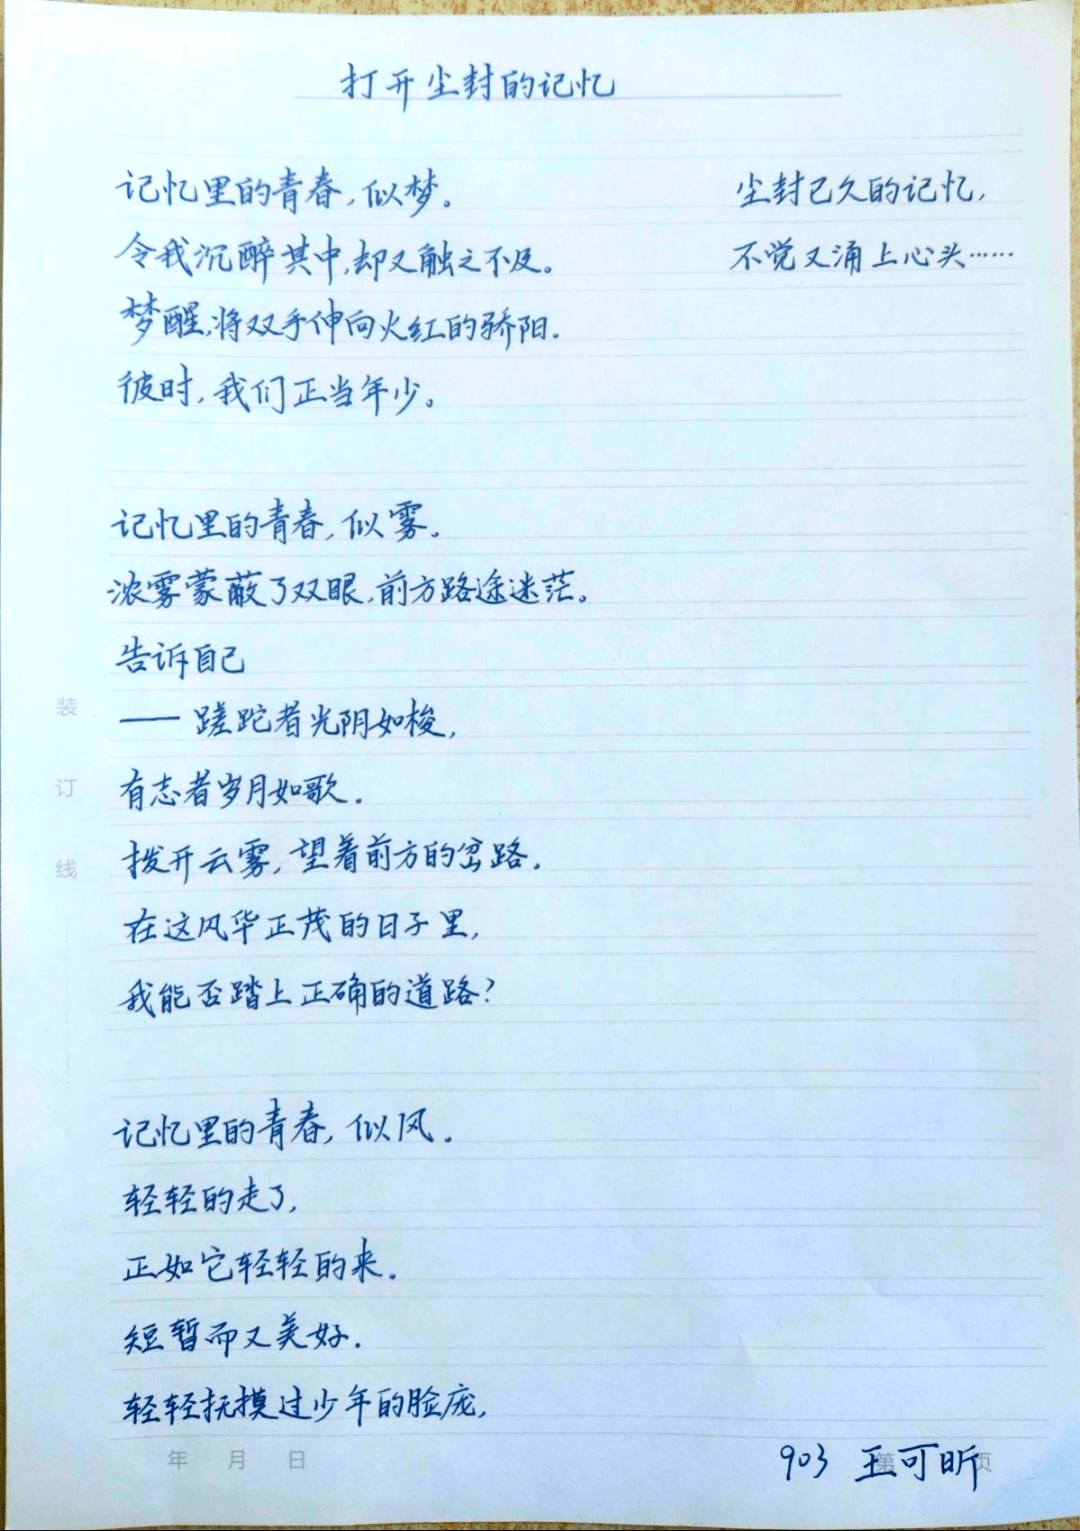 打开尘封的记忆
记忆里的青春,似梦。
令我沉醉其中,却又触之不及。
梦醒,将双手伸向火红的骄阳.
彼时,我们正当年少。
尘封已久的记忆,
不觉又涌上心头……
记忆里的青春,似雾。
浓雾蒙蔽了双眼,前方路途迷茫。
告诉自己
——蹉跎者光阴如梭,
有志者岁月如歌.
拨开云雾,望着前方的岔路.
在这风华正茂的日子里,
我能否踏上正确的道路?
记忆里的青春,似风.
轻轻的走了,
正如它轻轻的来.
短暂而又美好.
轻轻抚摸过少年的脸庞,
装
订
线
年 月 日
第 页
903 王可昕